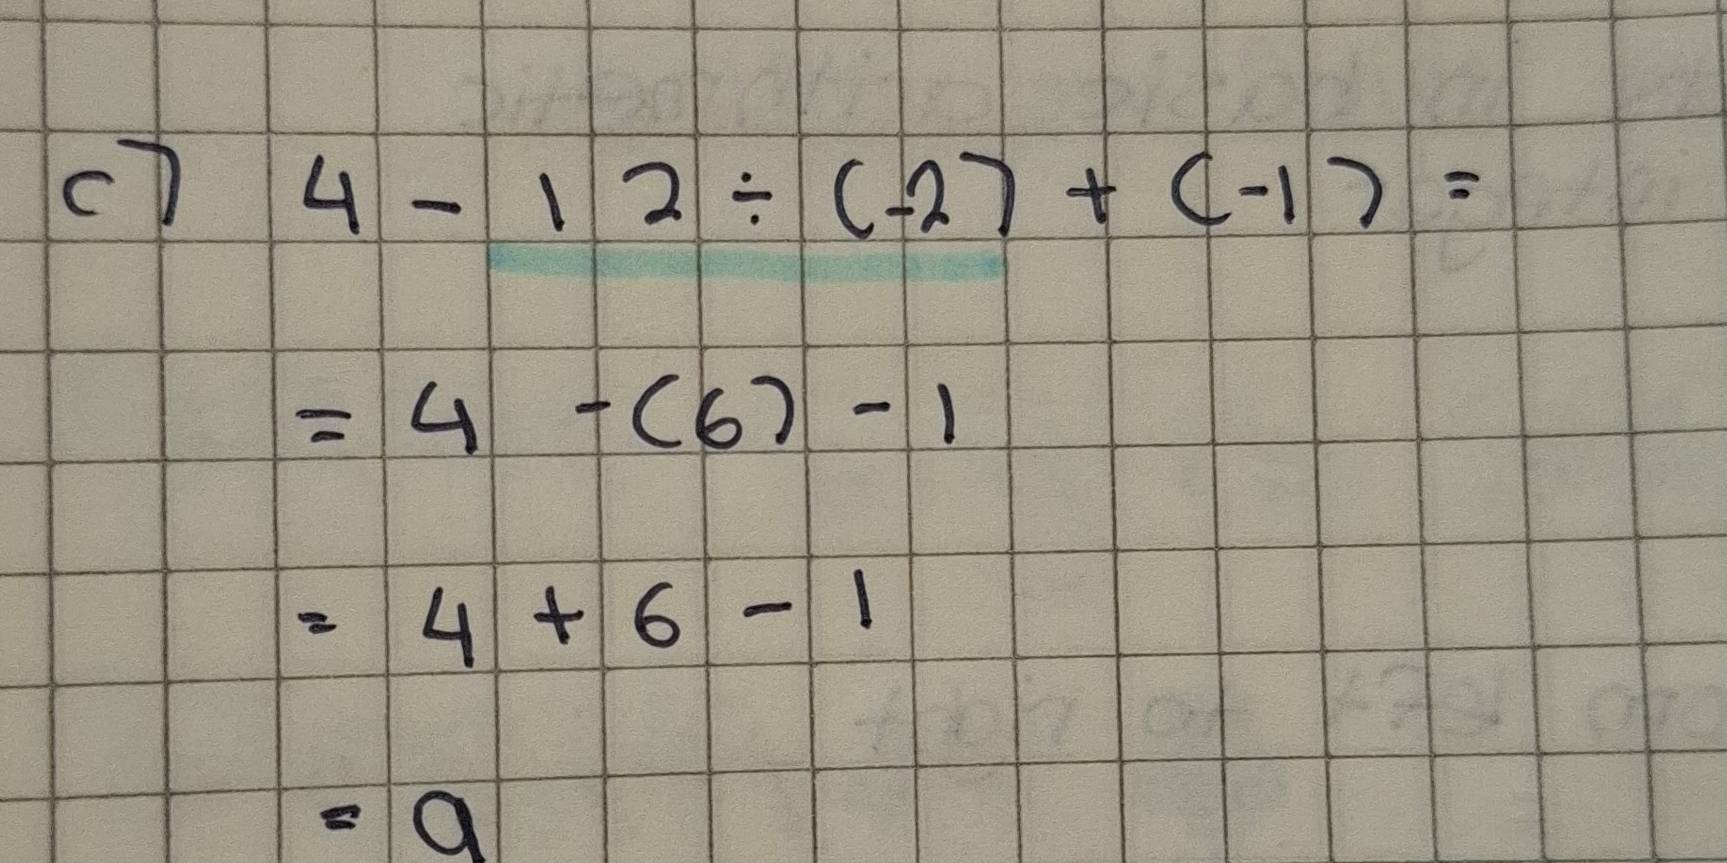 c) 4 - 12 ÷ (-2) + (-1) =
= 4 -(6) - 1
= 4 + 6 - 1
= 9